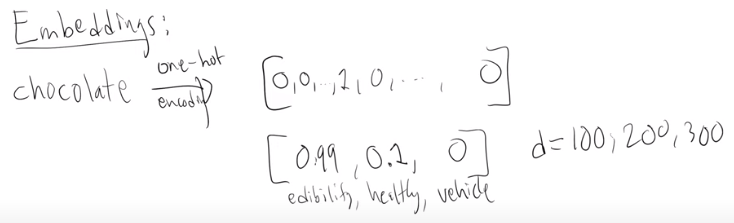 Embeddings:
chocolate one-hot encoding [0,0,..,1,0,...., 0]
[0.99, 0.1, 0] d=100,200,300
edibility, healthy, vehicle